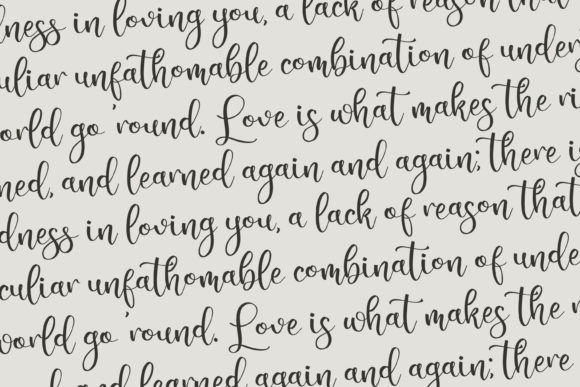 dness in loving you, a lack of reason that
culiar unfathomable combination of under
world go 'round. Love is what makes the ri
ned, and learned again and again; there is
dness in loving you, a lack of reason that
culiar unfathomable combination of unde
world go 'round. Love is what makes the
and learned again and again; there